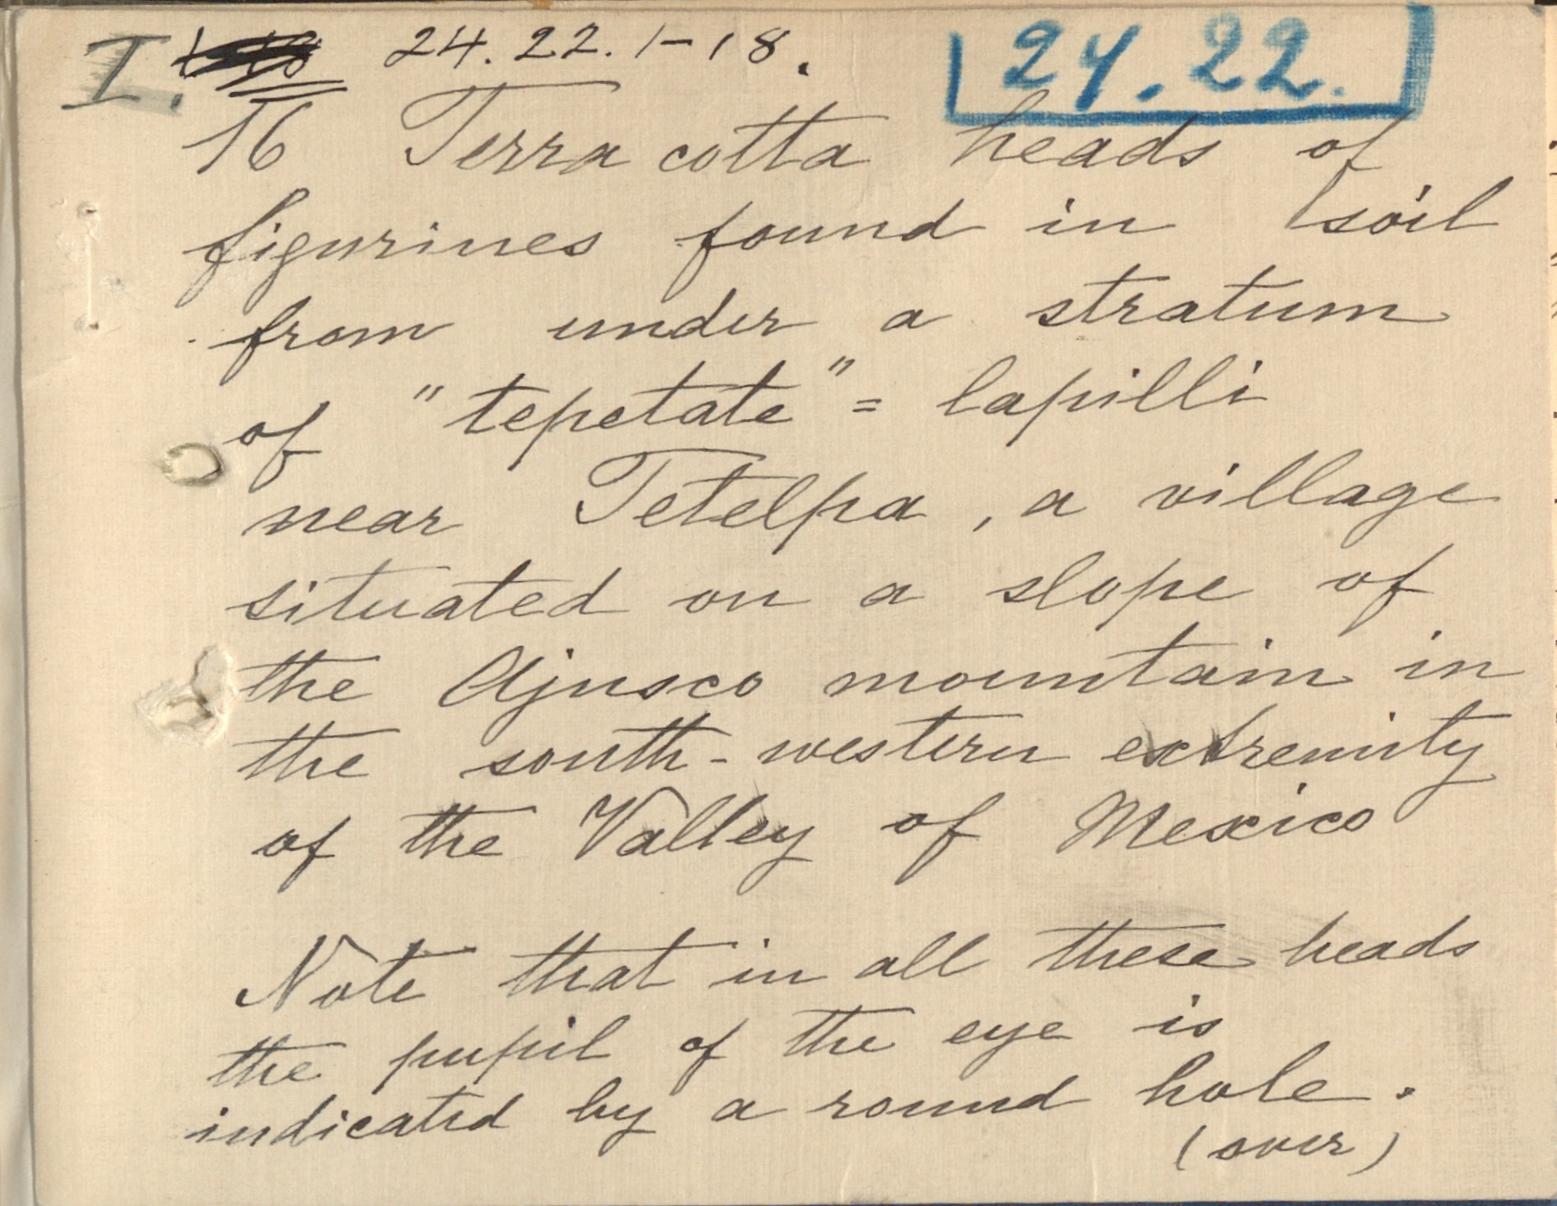 I. 24.22.1-18. 24.22.
16 Terra cotta heads of
figurines found in soil
from under a stratum
of "tepetate" = lapilli
near Tetelpa, a village
situated on a slope of
the Ajusco mountain in
the south-western extremity
of the Valley of Mexico
Note that in all these heads
the pupil of the eye is
indicated by a round hole.
(over)